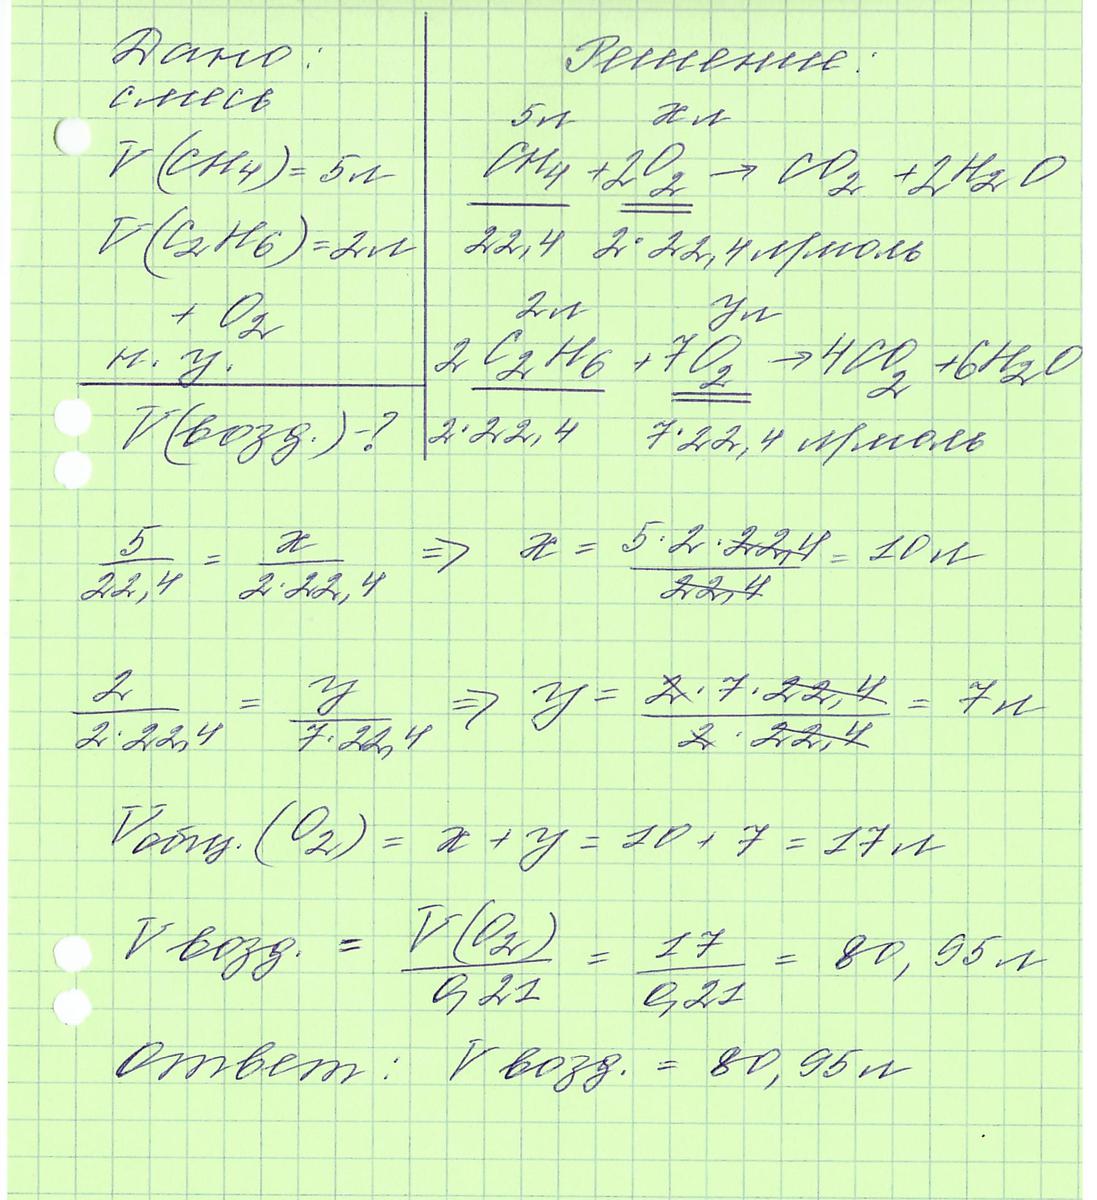 Дано:
смесь
V(CH4) = 5л
V(C2H6) = 2л
+ O2
н. у.
V(возд.) - ?
Решение:
5л xл
CH4 + 2O2 → CO2 + 2H2O
22,4 2·22,4 л/моль
2л yл
2C2H6 + 7O2 → 4CO2 + 6H2O
2·22,4 7·22,4 л/моль
5/22,4 = x/2·22,4 => x = 5·2·22,4/22,4 = 10л
2/2·22,4 = y/7·22,4 => y = 2·7·22,4/2·22,4 = 7л
Vобщ.(O2) = x + y = 10 + 7 = 17л
V возд. = V(O2)/0,21 = 17/0,21 = 80,95л
Ответ: V возд. = 80,95л